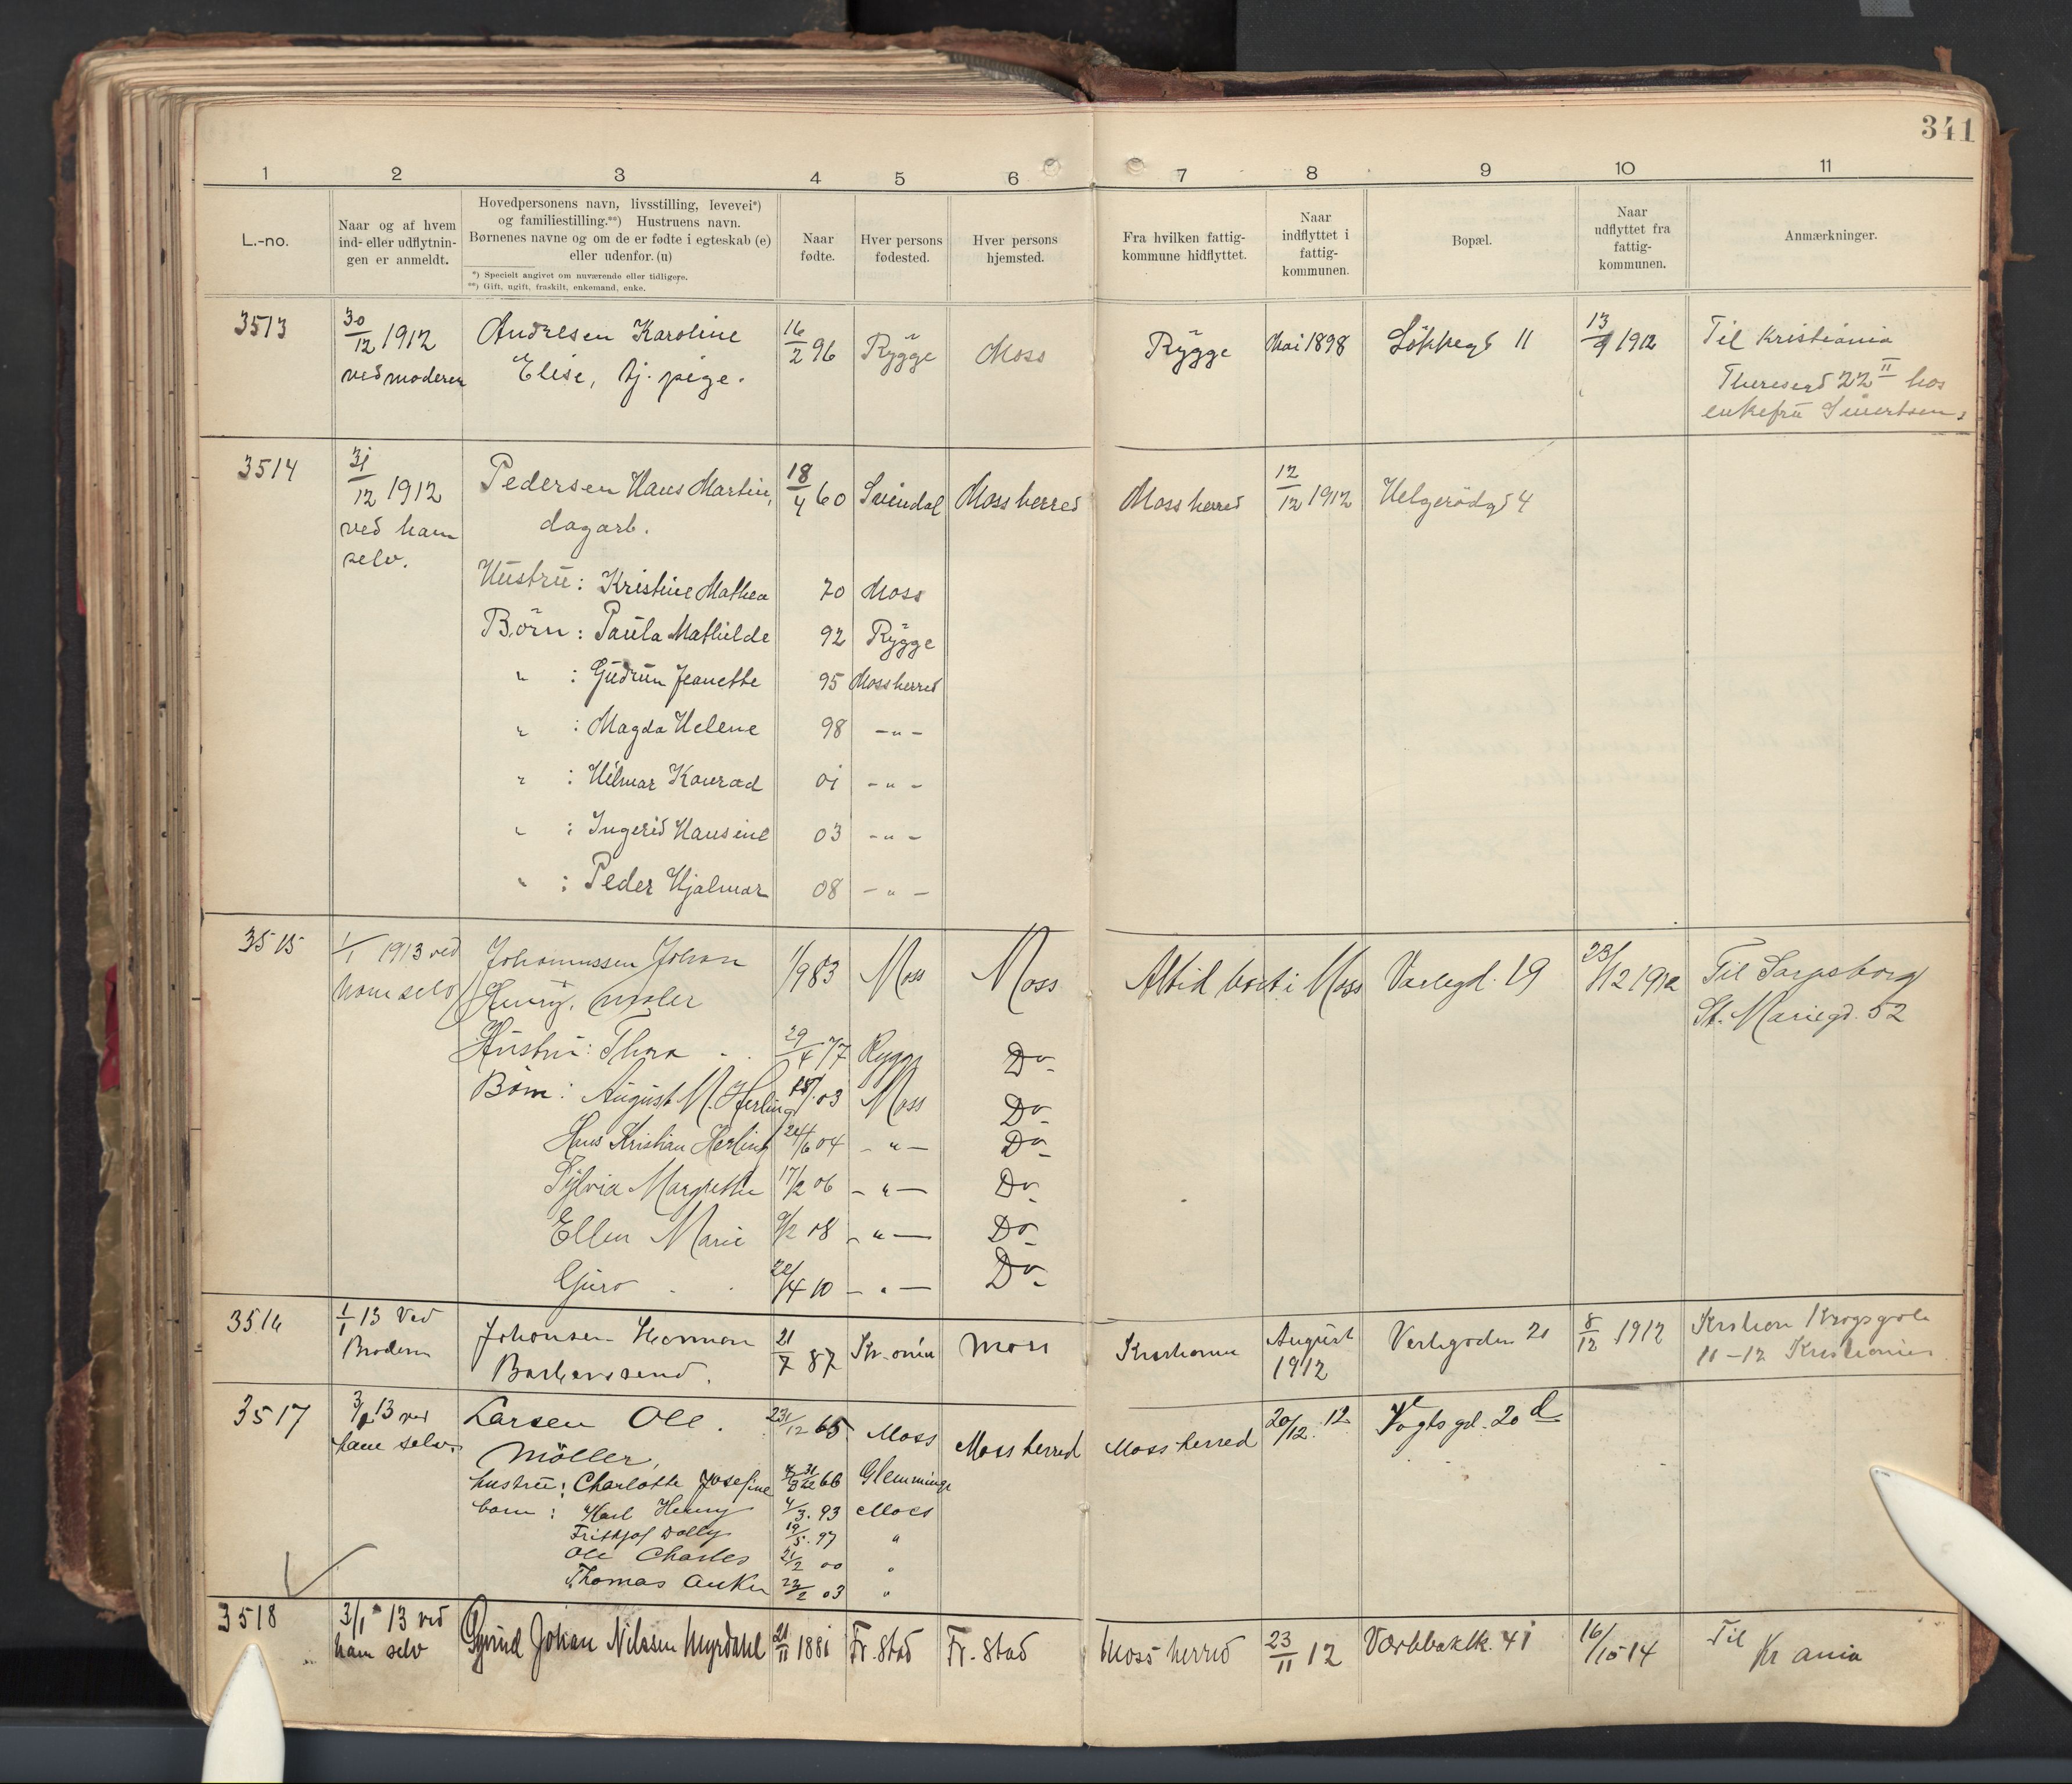 341
1 2 3 4 5 6 7 8 9 10 11
L.-no.
Naar og af hvem
ind- eller udflytnin-
gen er anmeldt.
Hovedpersonens navn, livsstilling, levevei*)
og familiestilling.**) Hustruens navn.
Børnenes navne og om de er fødte i egteskab (e)
eller udenfor. (u)
*) Specielt angivet om nuværende eller tidligere.
**) Gift, ugift, fraskilt, enkemand, enke.
Naar
fødte.
Hver persons
fødested.
Hver persons
hjemsted.
Fra hvilken fattig-
kommune hidflyttet.
Naar
indflyttet i
fattig-
kommunen.
Bopæl.
Naar
udflyttet fra
fattig-
kommunen.
Anmærkninger.
3513 30/12 1912 Andresen Karoline 16/2 96 Rygge Moss Rygge Mai 1898 13/9 1912 Til Kristiania
ved moderen Elise, tj. pige. Theresesgd 22 II hos
enkefru
3514 31/12 1912 Pedersen Hans Martin, 18/4 60 Svindal Moss herred Moss herred 12/12 1912 Helgerödgd 4
ved ham dagarb.
selv.
Hustru: Kristine Mathea 70 Moss
Börn: Paula Mathilde 92 Rygge
" : Gudrun Jeanette 95 Moss herred
" : Magda Helene 98 -"-
" : Hilmar Konrad 01 -"-
" : Ingerid Hansine 03 -"-
" : Peder Hjalmar 08 -"-
3515 1/1 1913 ved Johannssen Johan 1/9 83 Moss Moss Altid bort i Moss Varlegd. 19 23/12 1912 Til Sarpsborg
ham selv Henry, maler St. Mariegd. 52
Hustru: Thora 29/4 77 Rygge Do
Börn: August M. Herling 03 Moss Do
Hans Kristian Herling 24/6 04 -"- Do
Sylvia Margrethe 17/2 06 -"- Do
Ellen Marie 9/2 08 -"- Do
Guro 22/4 10 -"- Do
3516 1/1 13 Ved Johansen Herman 21/7 87 Kr.ania Moss Kristiania August 8/12 1912 Kristian Krogsgate
Broderen 1912 11-12 Kristiania
3517 3/1 13 ved Larsen Ole. 23/12 65 Moss Moss herred Moss herred 20/12. 12 Vogtsgd. 20 d
ham selv. Möller,
hustru: Charlotte Josefine 66 Glemminge
barn: Karl Henry 4/3. 93 Moss
Frithjof Dolly 19/5. 97 "
Ole Charles 21/2 00 "
Thomas Anker 23/2 03 "
3518 3/1 13 ved Johan Nilssen Myrdahl 21/11 1881 Fr.stad Fr.stad Moss herred 23/11 12 Værlebaklk. 41 16/10 14 Til
ham selv Kr ania